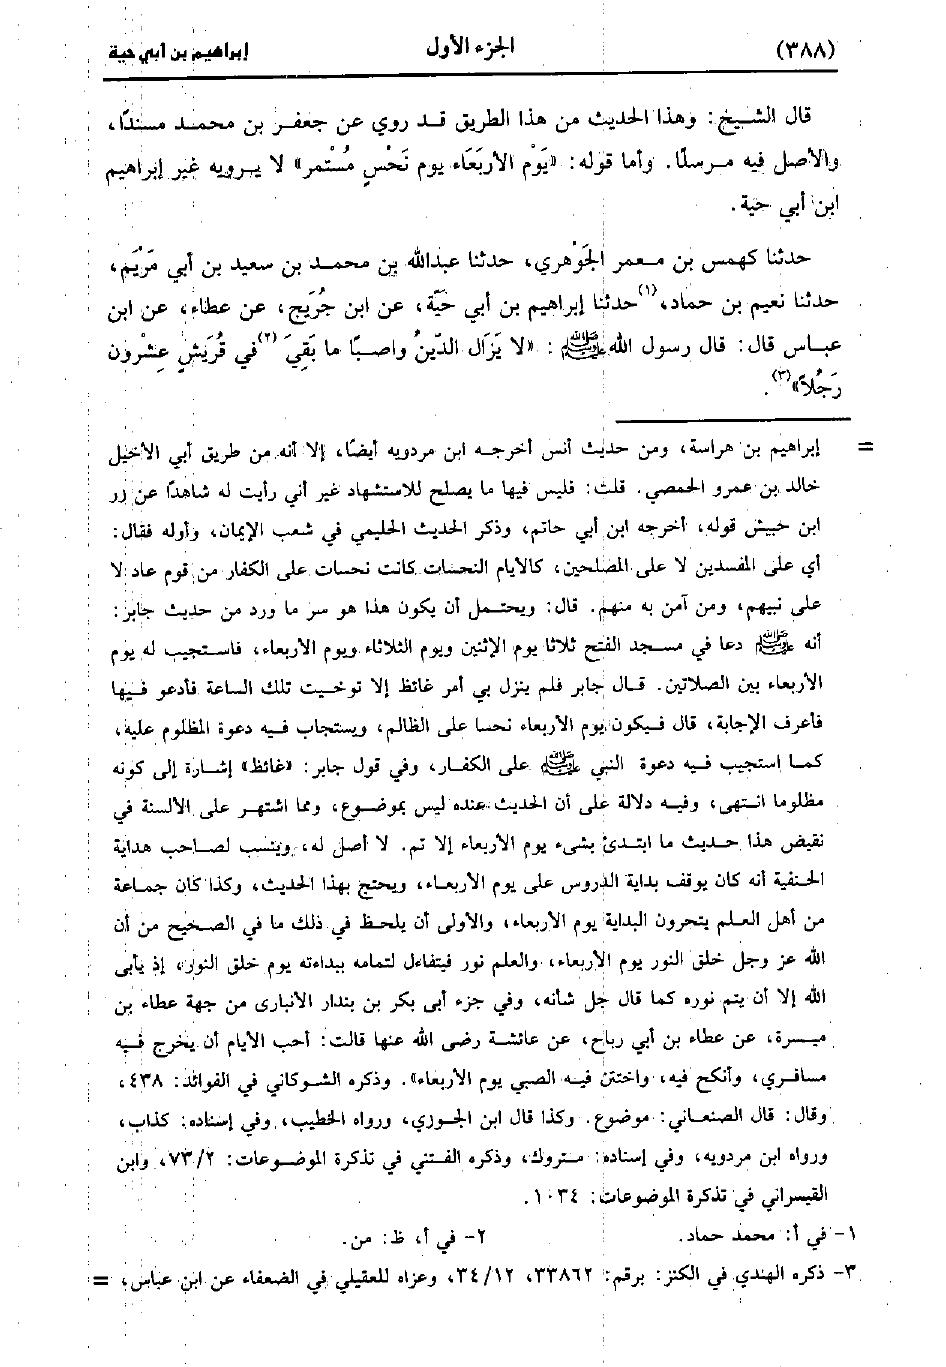 (٣٨٨) الجزء الأول إبراهيم بن أبي حية
قال الشيخ: وهذا الحديث من هذا الطريق قد روي عن جعفر بن محمد مسندًا،
والأصل فيه مرسلًا. وأما قوله: «يَوْم الأرْبَعَاء يوم نَحْسٍ مُسْتمر» لا يرويه غير إبراهيم
ابن أبي حية.
حدثنا كهمس بن معمر الجَوْهري، حدثنا عبدالله بن محمد بن سعيد بن أبي مَرْيَم،
حدثنا نعيم بن حماد،(١) حدثنا إبراهيم بن أبي حَيَّة، عن ابن جُرَيج، عن عطاء، عن ابن
عباس قال: قال رسول الله ﷺ: «لا يَزَال الدّينُ واصبًا ما بَقِيَ(٢) في قُرَيشٍ عِشْرون
رَجُلًا»(٣).
= إبراهيم بن هراسة، ومن حديث أنس أخرجه ابن مردويه أيضًا، إلا أنه من طريق أبي الأخيل
خالد بن عمرو الحمصي. قلت: فليس فيها ما يصلح للاستشهاد غير أني رأيت له شاهدًا عن زر
ابن حبيش قوله، أخرجه ابن أبي حاتم، وذكر الحديث الحليمي في شعب الإيمان، وأوله فقال:
أي على المفسدين لا على المصلحين، كالأيام النحسات كانت نحسات على الكفار من قوم عاد لا
على نبيهم، ومن آمن به منهم. قال: ويحتمل أن يكون هذا هو سر ما ورد من حديث جابر:
أنه ﷺ دعا في مسجد الفتح ثلاثا يوم الإثنين ويوم الثلاثاء ويوم الأربعاء، فاستجيب له يوم
الأربعاء بين الصلاتين. قال جابر فلم ينزل بي أمر غائظ إلا توخيت تلك الساعة فأدعو فيها
فأعرف الإجابة، قال فيكون يوم الأربعاء نحسا على الظالم، ويستجاب فيه دعوة المظلوم عليه،
كما استجيب فيه دعوة النبي ﷺ على الكفار، وفي قول جابر: «غائظ» إشارة إلى كونه
مظلوما انتهى، وفيه دلالة على أن الحديث عنده ليس بموضوع، ومما اشتهر على الألسنة في
نقيض هذا حديث ما ابتدئ بشىء يوم الأربعاء إلا تم. لا أصل له، وينسب لصاحب هداية
الحنفية أنه كان يوقف بداية الدروس على يوم الأربعاء، ويحتج بهذا الحديث، وكذا كان جماعة
من أهل العلم يتحرون البداية يوم الأربعاء، والأولى أن يلحظ في ذلك ما في الصحيح من أن
الله عز وجل خلق النور يوم الأربعاء، والعلم نور فيتفاءل لتمامه ببداءته يوم خلق النور، إذ يأبى
الله إلا أن يتم نوره كما قال جل شأنه، وفي جزء أبى بكر بن بندار الأنبارى من جهة عطاء بن
ميسرة، عن عطاء بن أبي رباح، عن عائشة رضى الله عنها قالت: أحب الأيام أن يخرج فيه
مسافري، وأنكح فيه، واختتن فيه الصبي يوم الأربعاء». وذكره الشوكاني في الفوائد: ٤٣٨،
وقال: قال الصنعاني: موضوع. وكذا قال ابن الجوزي، ورواه الخطيب، وفي إسناده: كذاب،
ورواه ابن مردويه، وفي إسناده: متروك، وذكره الفتني في تذكرة الموضوعات: ٧٣/٢، وابن
القيسراني في تذكرة الموضوعات: ١٠٣٤.
١- في أ: محمد حماد. ٢- في أ، ظ: من.
٣- ذكره الهندي في الكنز: برقم: ٣٣٨٦٢، ٣٤/١٢، وعزاه للعقيلي في الضعفاء عن ابن عباس، =